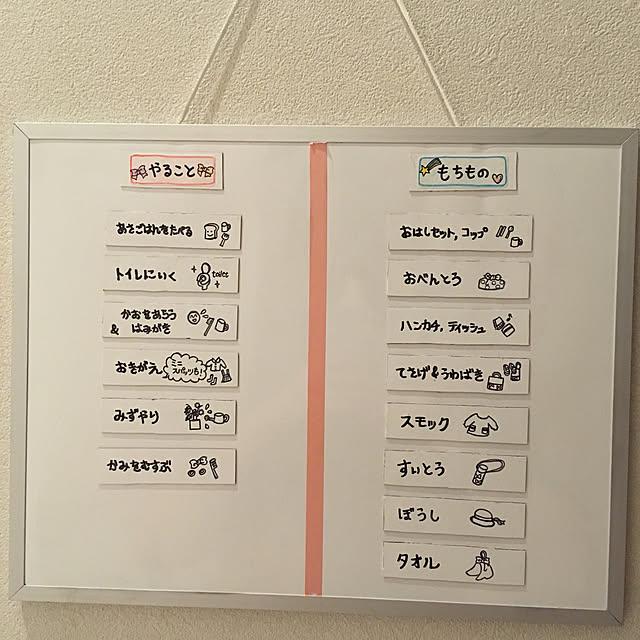 やること
あさごはんをたべる
トイレにいく toilet
かおをあらう
& はみがき
おきがえ ミニスパッツも!
みずやり
かみをむすぶ
もちもの
おはしセット, コップ
おべんとう
ハンカチ, ティッシュ
てさげ&うわばき
スモック
すいとう
ぼうし
タオル